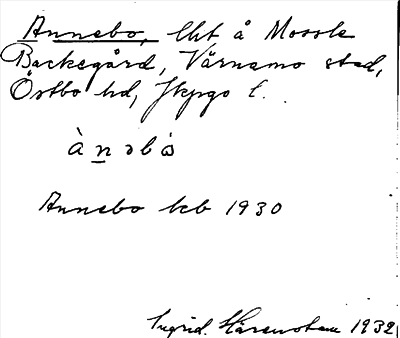 Annebo, lht å Mossle
Backegård, Värnamo stad,
Östbo hd, Jkpgs l.
ànəbò
Annebo kb 1930
Ingrid Härenstam 1932